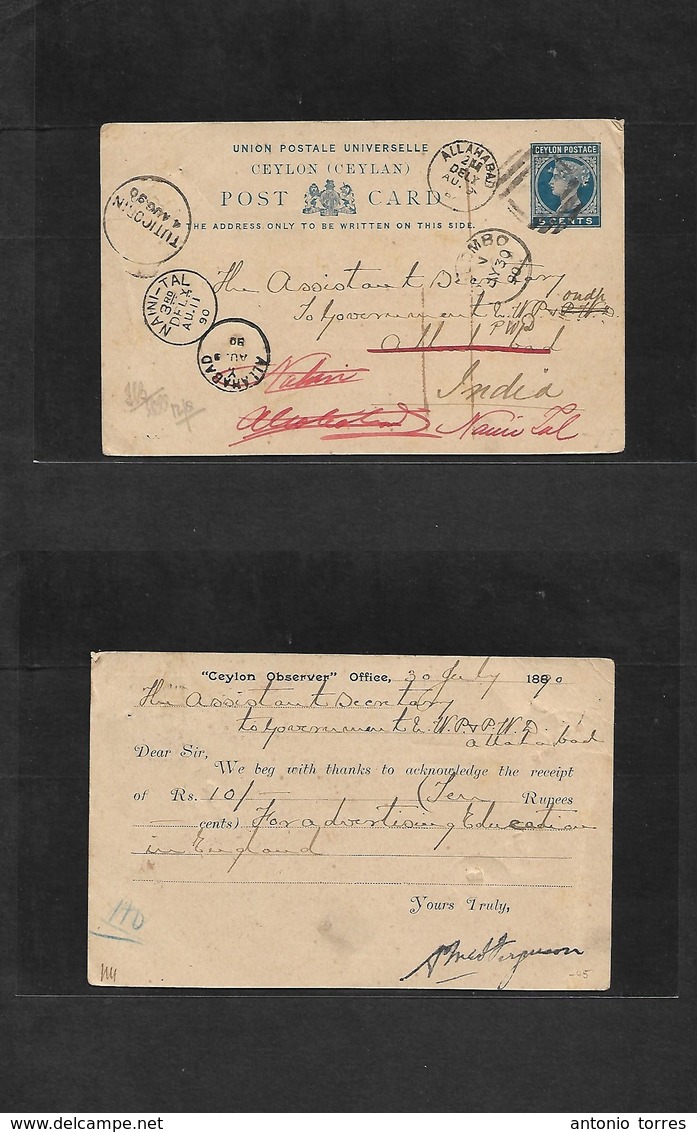 UNION POSTALE UNIVERSELLE
CEYLON (CEYLAN)
POST CARD
THE ADDRESS ONLY TO BE WRITTEN ON THIS SIDE.
CEYLON POSTAGE
5 CENTS
ALLAHABAD
DELY
AU.
TUTICORIN
4 AUG 90
NAINI-TAL
3RD
DELY
AU.11
90
ALLAHABAD
AU. 9
90
The Assistant Secretary
To Government
PWD
Allahabad
India
Naini Tal
"Ceylon Observer" Office, 30 July 1890
The Assistant Secretary
to Government &. W.P. & P.W.D.
Allahabad
Dear Sir,
We beg with thanks to acknowledge the receipt
of Rs. 10/- (Ten Rupees
cents) For advertising Education
in England
Yours Truly,
Ferguson
antonio torres